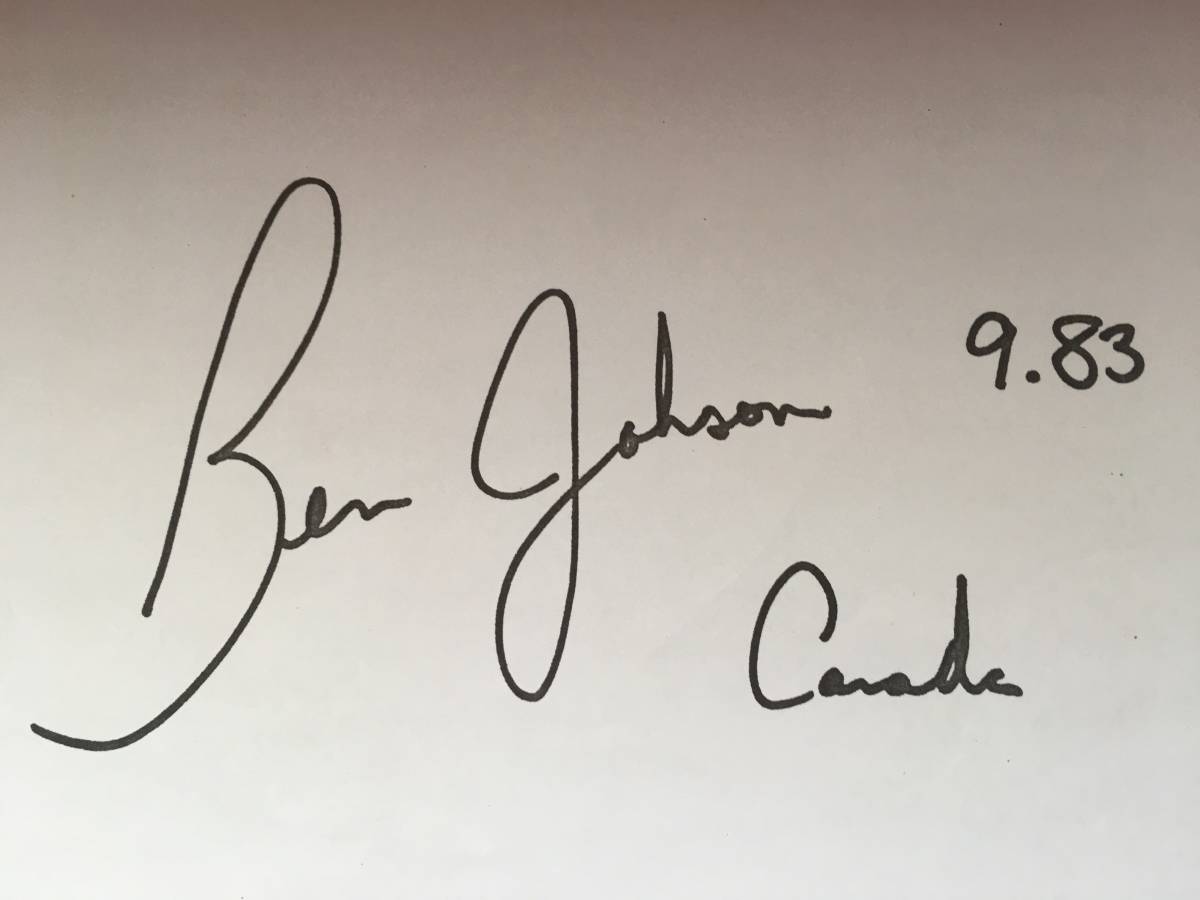 Ben Johnson 9.83
Canada